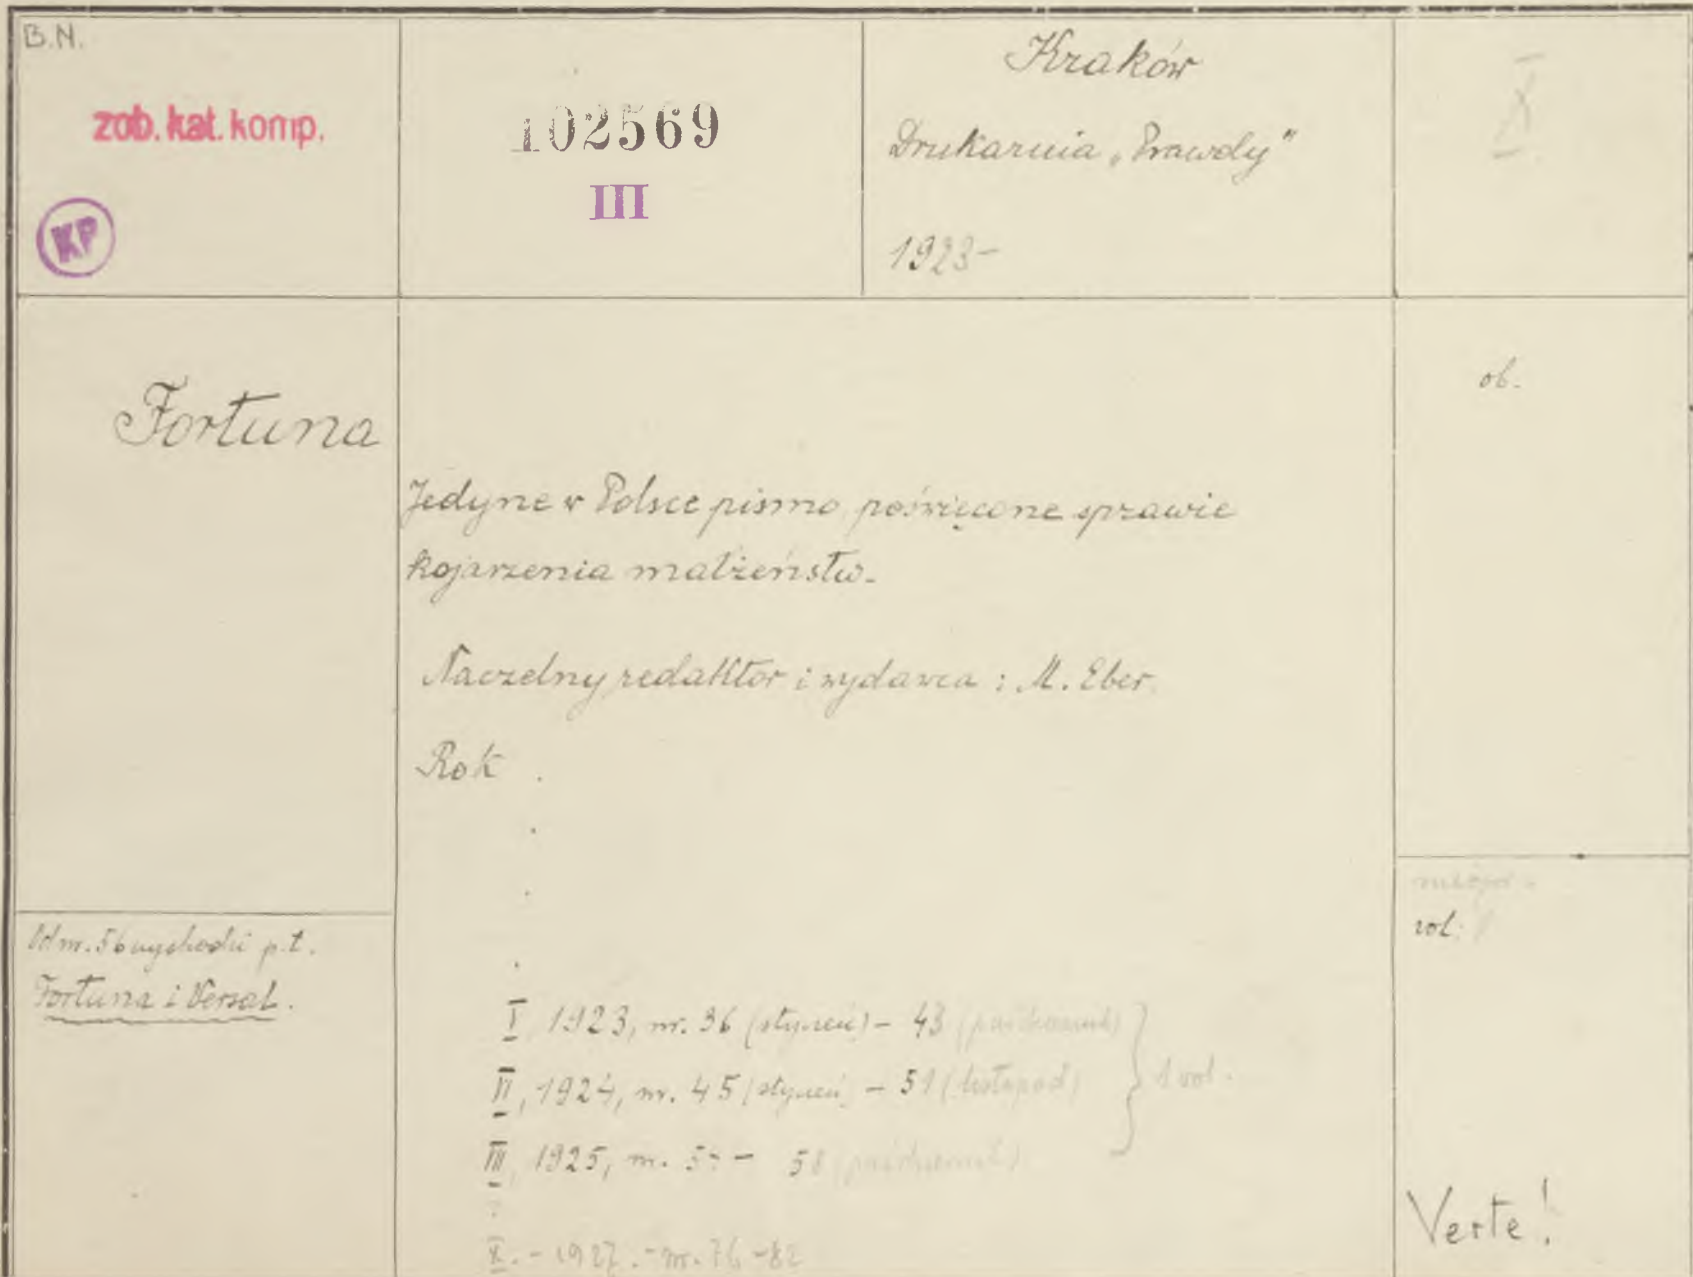 B.N.
zob. kat. komp.
KP
102569
III
Kraków
Drukarnia „Prawdy"
1923-
X
Fortuna
Jedyne w Polsce pismo poświęcone sprawie
kojarzenia małżeństw.
Naczelny redaktor i wydawca : M. Eber.
Rok
ob.
Od nr. 56 wychodzi p.t.
Fortuna i Versal.
I, 1923, nr. 36 (styczeń) - 43 (październik)
II, 1924, nr. 45 (styczeń) - 51 (listopad)
1 vol.
III, 1925, nr. - 58 (październik)
X. - 1927. - nr. 76 - 82
vol.
Verte!